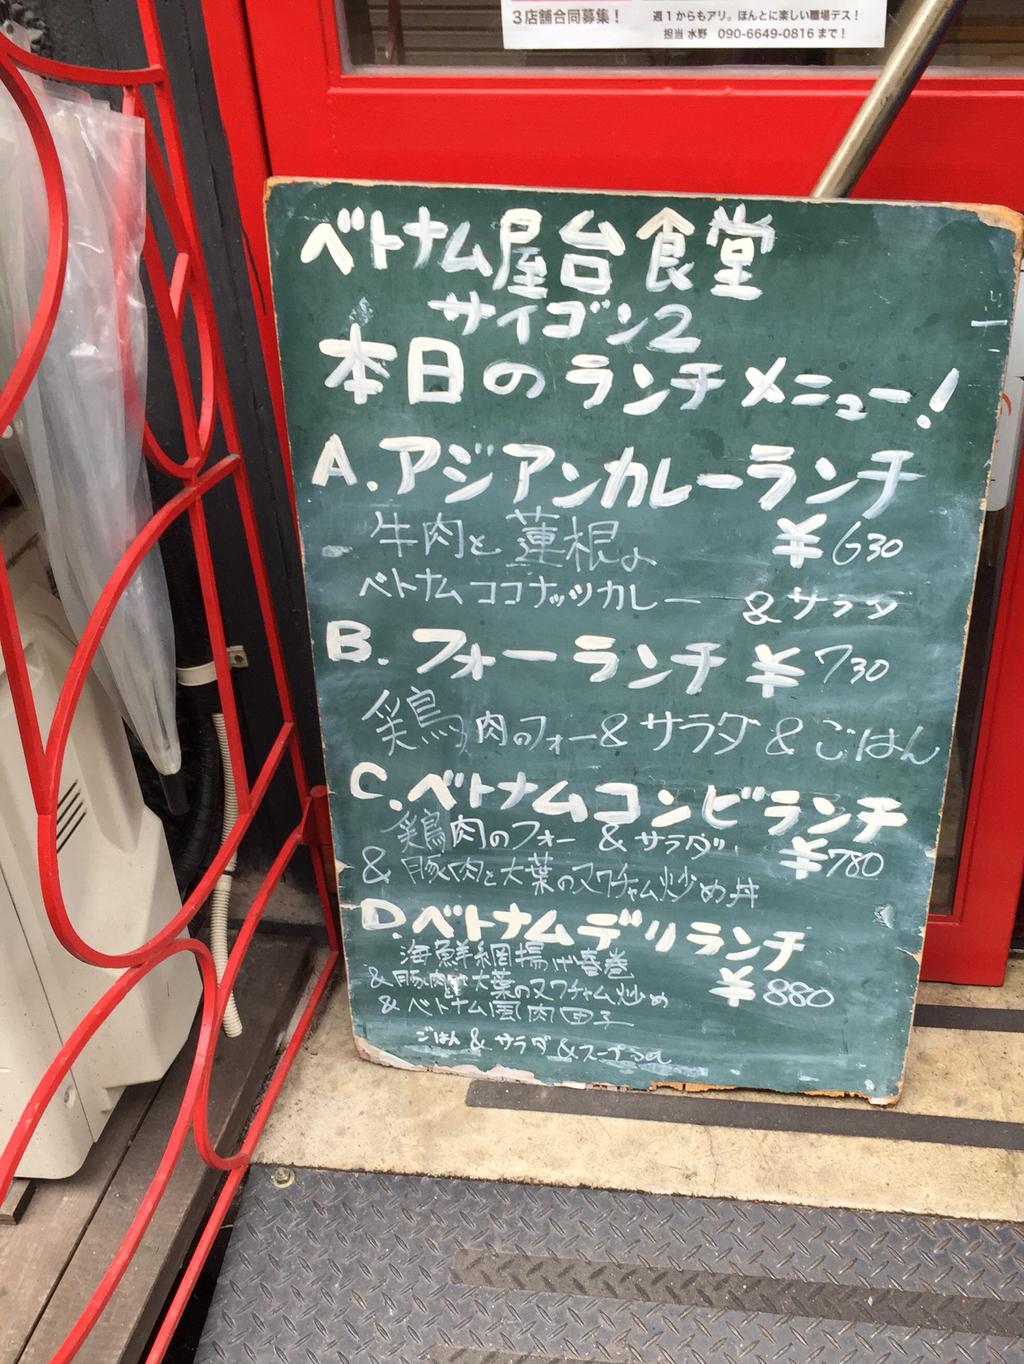 3店舗合同募集！
週1からもアリ。ほんとに楽しい職場デス！
担当 水野 090-6649-0816まで！
ベトナム屋台食堂
サイゴン2
本日のランチメニュー！
A.アジアンカレーランチ
¥630
牛肉と蓮根の
ベトナムココナッツカレー &サラダ
B.フォーランチ ¥730
鶏肉のフォー&サラダ&ごはん
C.ベトナムコンビランチ
鶏肉のフォー &サラダ
¥780
&豚肉と大葉のヌクチャム炒め丼
D.ベトナムデリランチ
海鮮網揚げ春巻
&豚肉と大葉のヌクチャム炒め
¥880
&ベトナム風肉団子
ごはん&サラダ&スープset